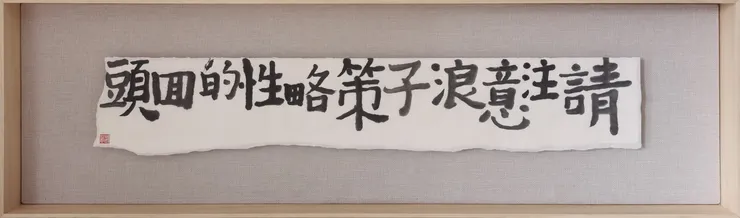 請注意浪子策略性的回頭